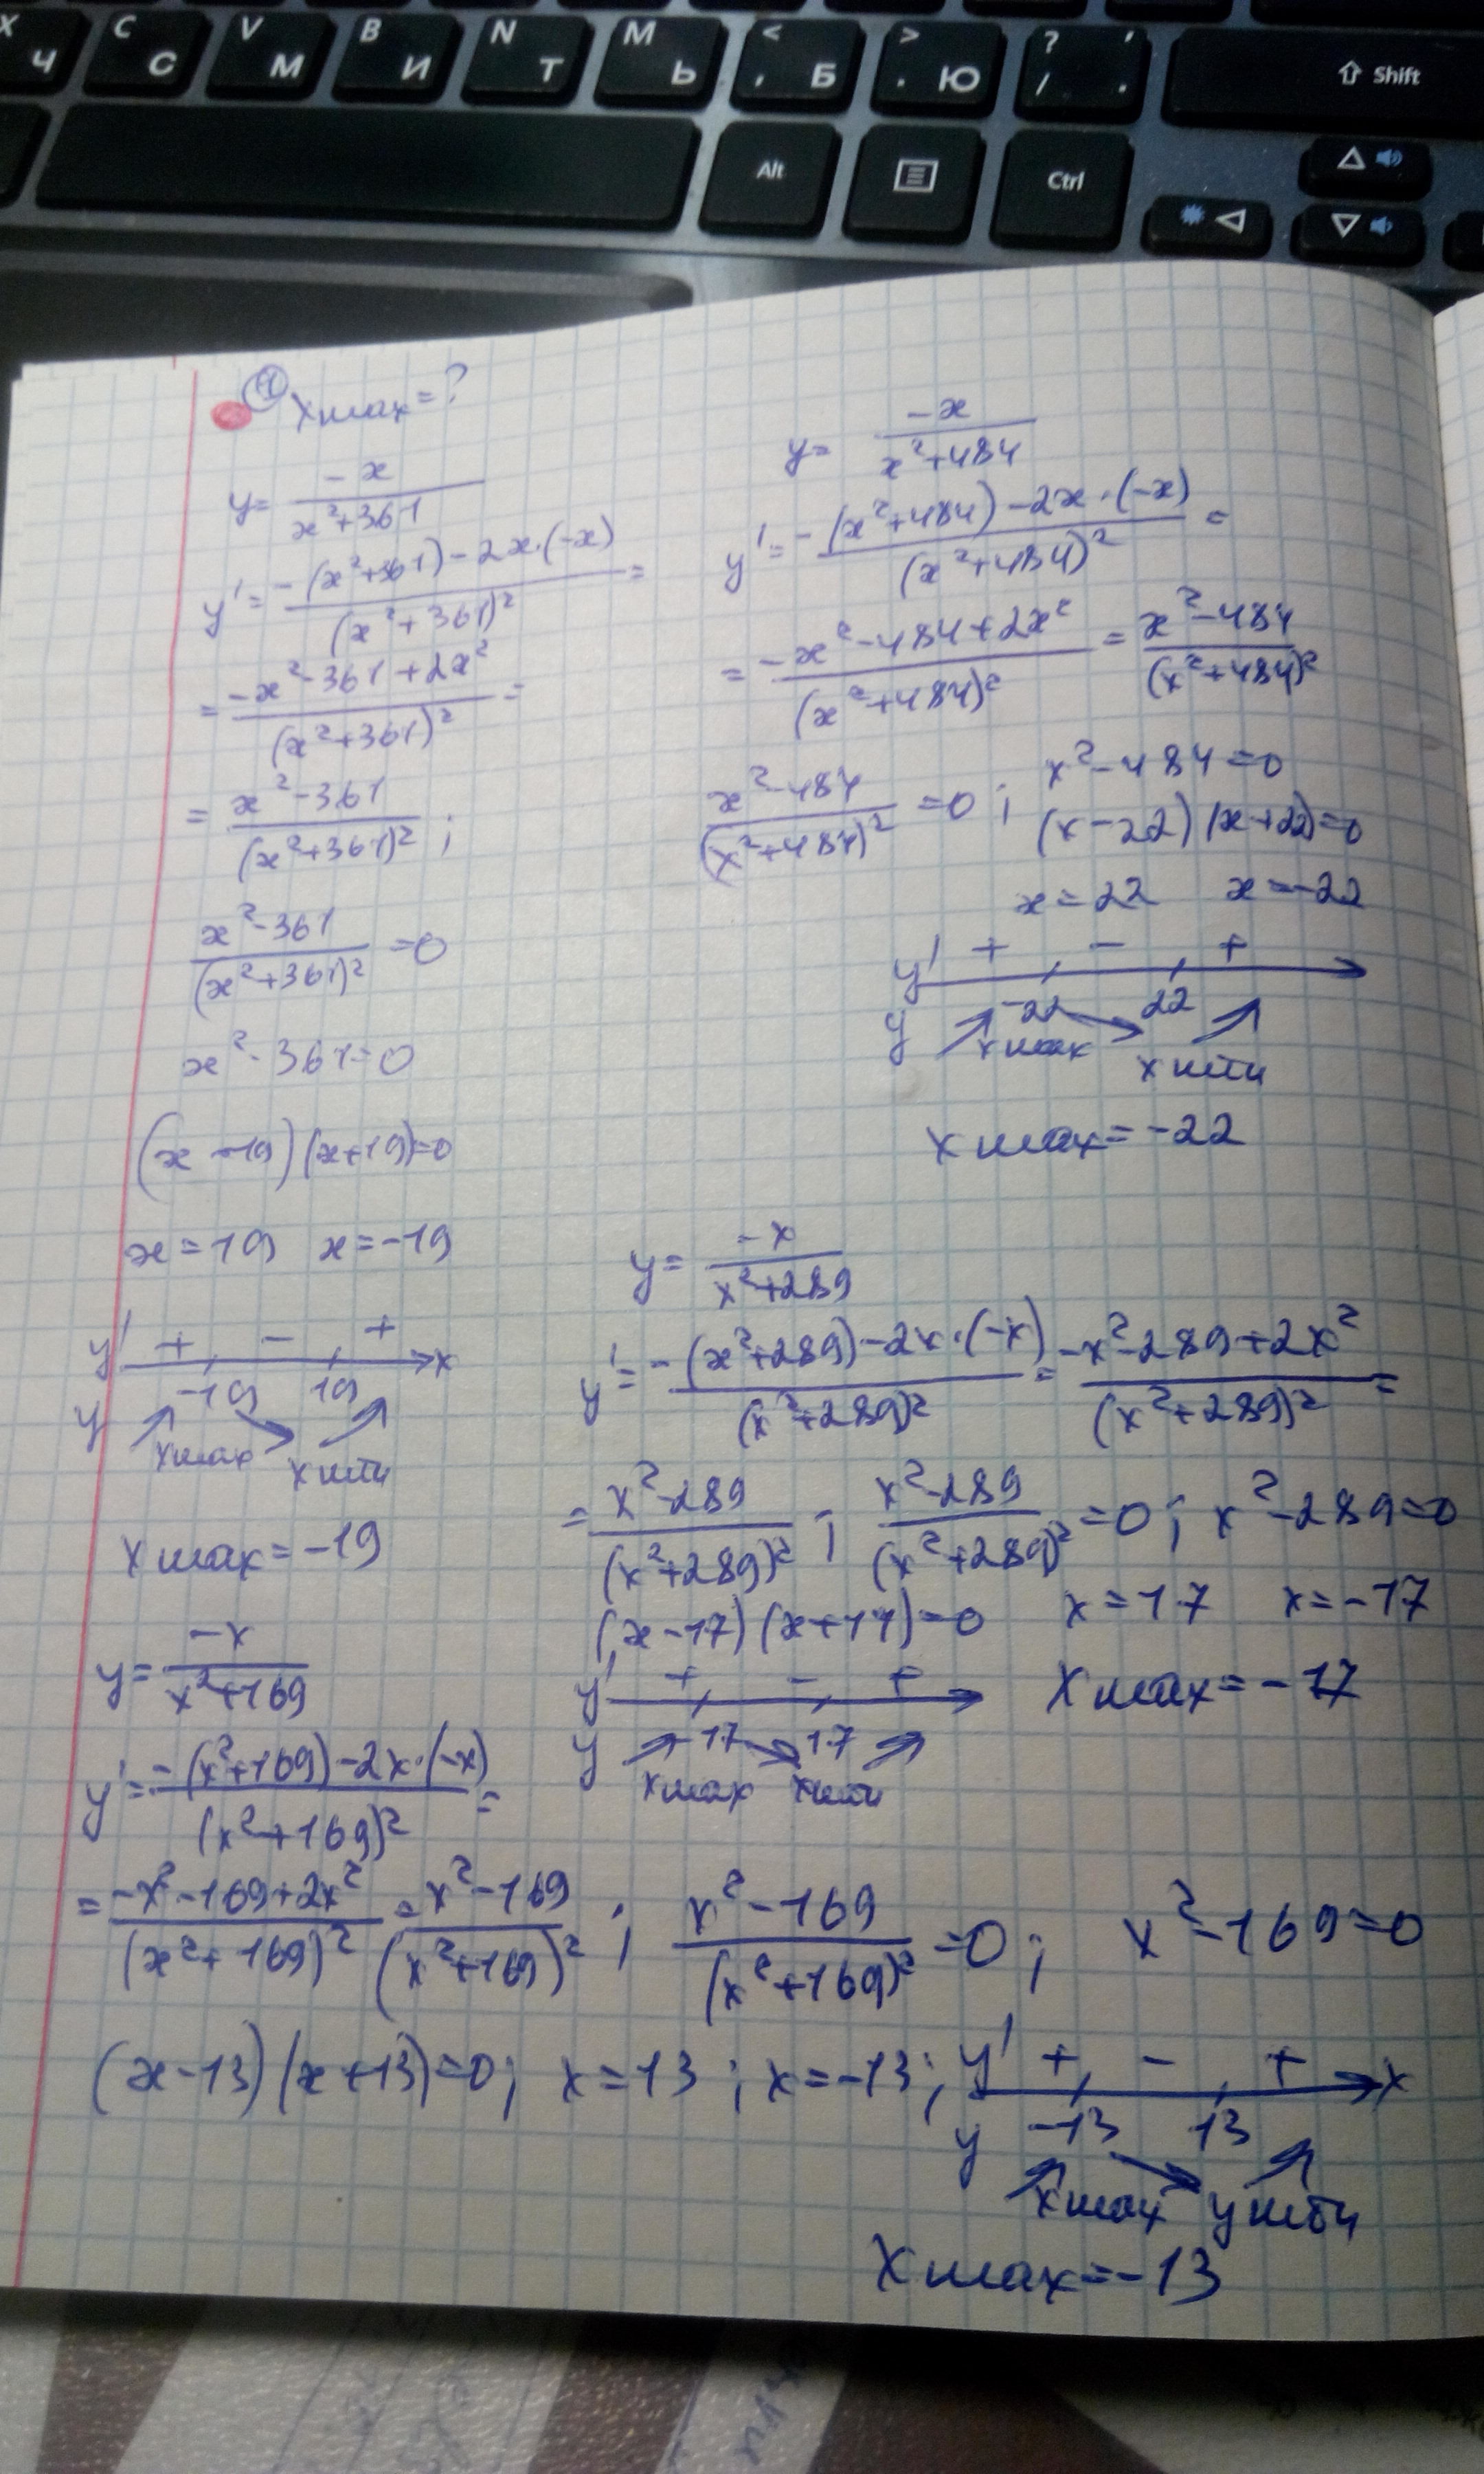 Х Ч C С V М B И N Т M Ь < , Б > . Ю ? / , . Shift
Alt Ctrl
xmax=?
y= -x/(x²+361)
y'= (-(x²+361)-2x·(-x))/(x²+361)² =
= (-x²-361+2x²)/(x²+361)² =
= (x²-361)/(x²+361)² ;
(x²-361)/(x²+361)² =0
x²-361=0
(x-19)(x+19)=0
x=19 x=-19
y' + - + x
-19 19
y xmax xmin
xmax=-19
y= -x/(x²+484)
y'= (-(x²+484)-2x·(-x))/(x²+484)² =
= (-x²-484+2x²)/(x²+484)² = (x²-484)/(x²+484)²
(x²-484)/(x²+484)² =0 ; x²-484=0
(x-22)(x+22)=0
x=22 x=-22
y' + - +
-22 22
y xmax xmin
xmax=-22
y= -x/(x²+289)
y'= (-(x²+289)-2x·(-x))/(x²+289)² = (-x²-289+2x²)/(x²+289)² =
= (x²-289)/(x²+289)² ; (x²-289)/(x²+289)² =0 ; x²-289=0
(x-17)(x+17)=0 x=17 x=-17
y' + - +
-17 17
y xmax xmin
xmax=-17
y= -x/(x²+169)
y'= (-(x²+169)-2x·(-x))/(x²+169)² =
= (-x²-169+2x²)/(x²+169)² = (x²-169)/(x²+169)² ; (x²-169)/(x²+169)² =0 ; x²-169=0
(x-13)(x+13)=0; x=13 ; x=-13; y' + - + x
-13 13
y xmax ymin
xmax=-13